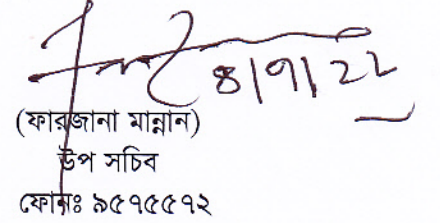 ৪/৭/২২
(ফারজানা মান্নান)
উপ সচিব
ফোনঃ ৯৫৭৫৫৭২